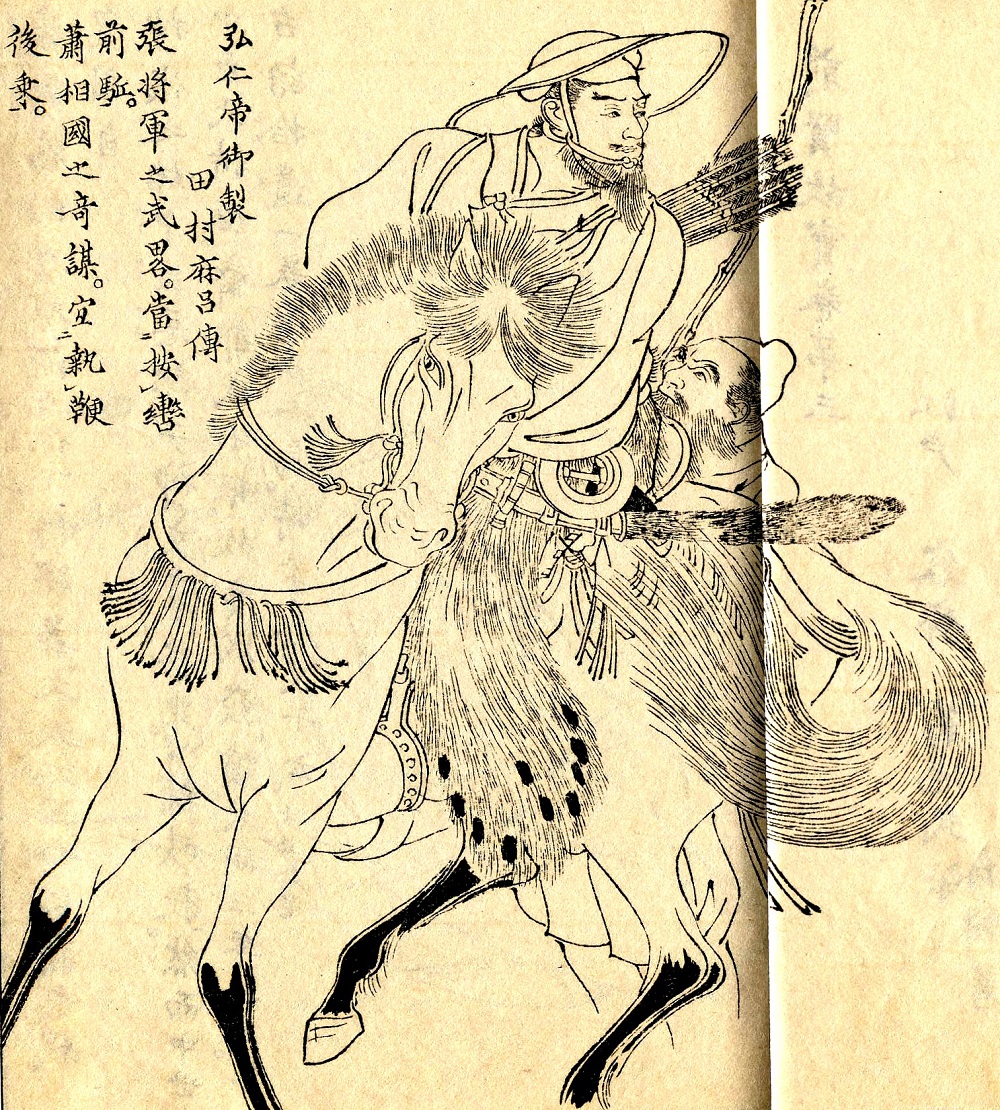 弘仁帝御製
田村麻呂傳
張將軍之武畧。當二按轡
前駈。
蕭相國之奇謀。宜二執鞭
後乗。